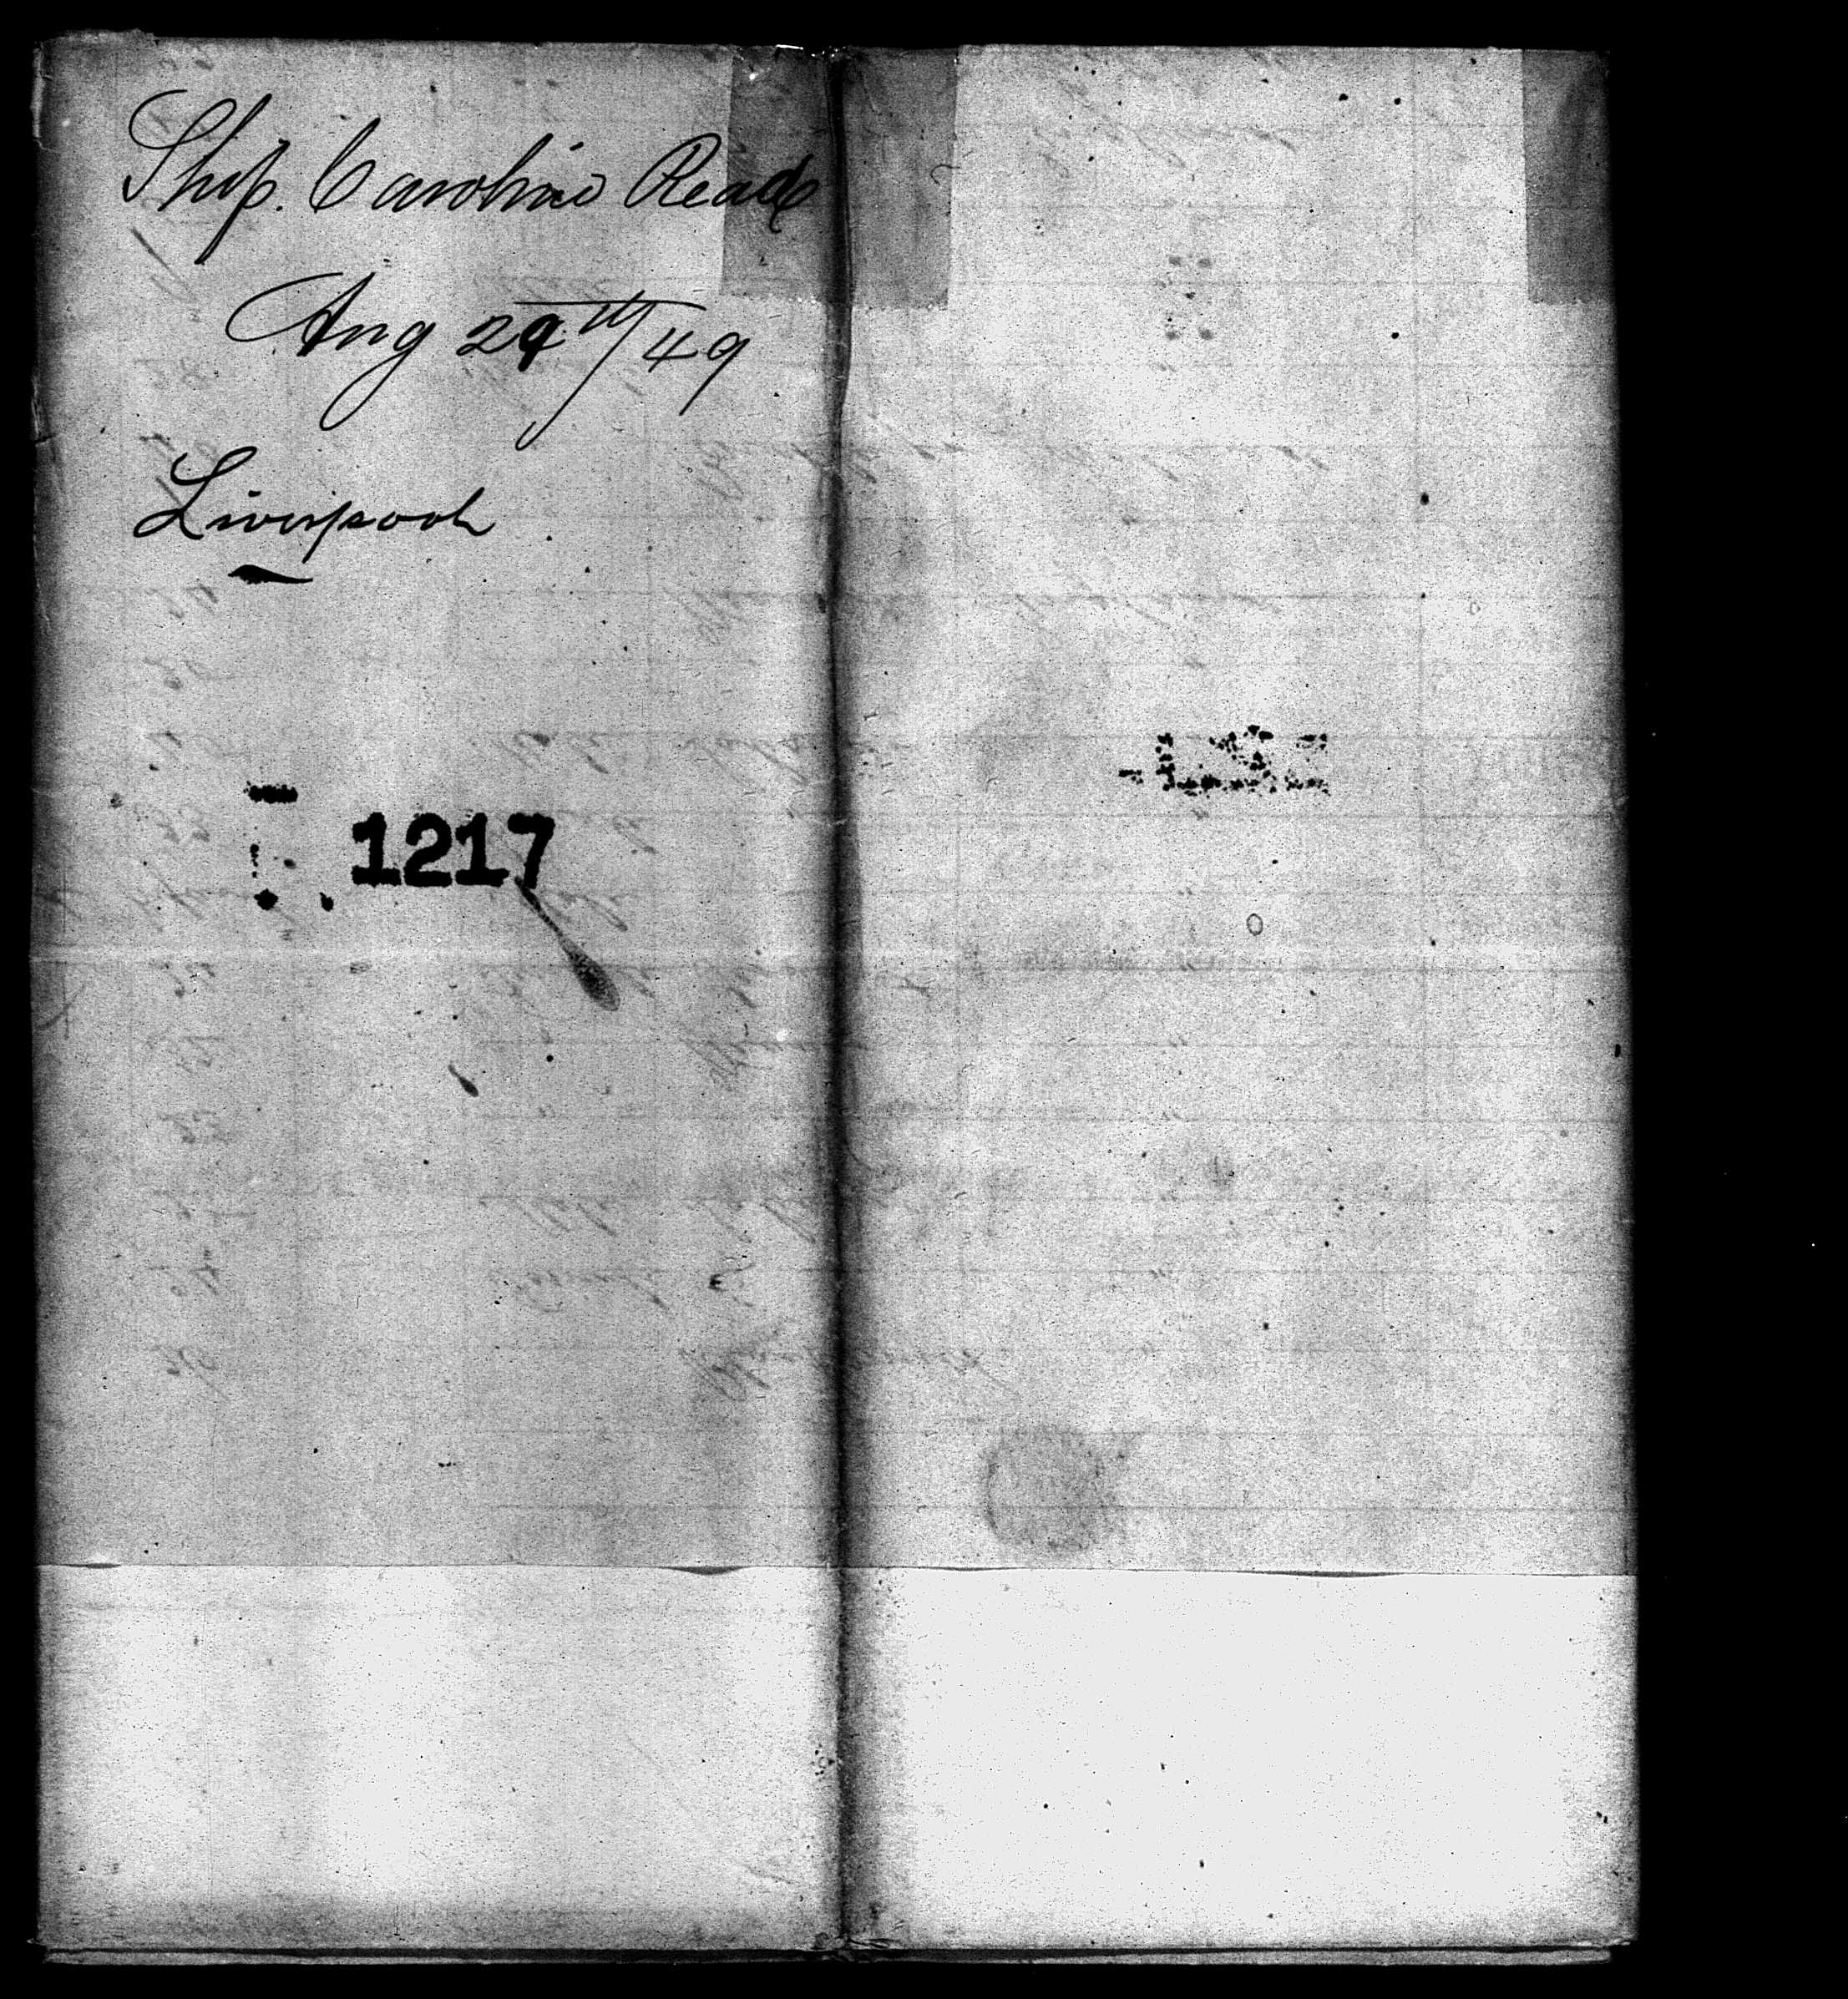 Ship. Caroline Reade
Aug 29th/49
Liverpool
1217